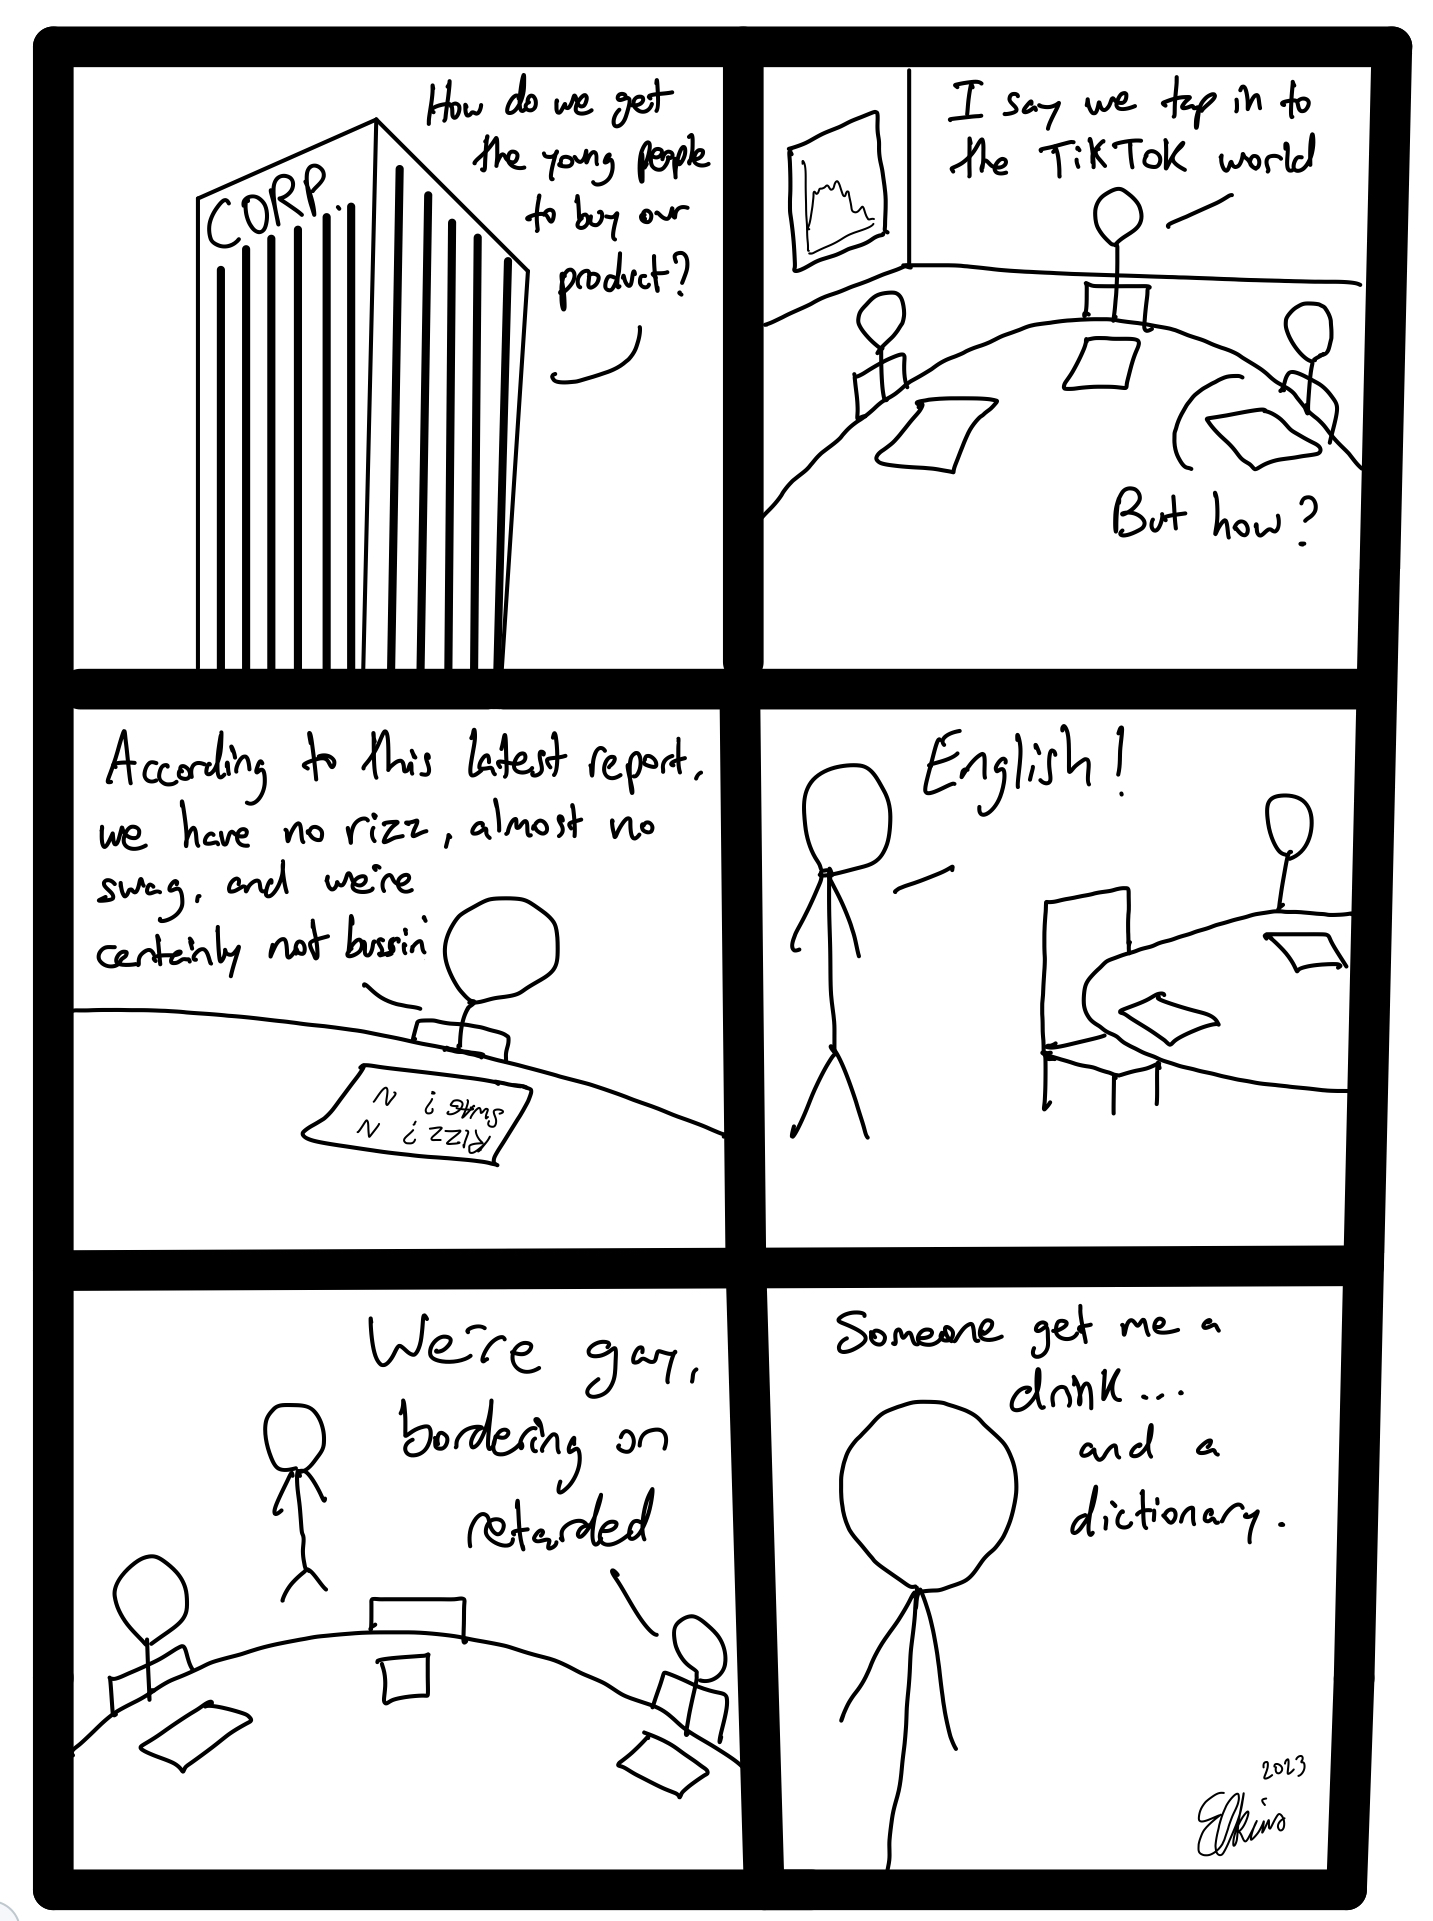 CORP.
How do we get
the young people
to buy our
product?
I say we tap in to
the TikTok world
But how?
According to this latest report,
we have no rizz, almost no
swag, and we're
certainly not bussin
RIZZ? N
SWAG? N
English!
We're gay,
bordering on
retarded
Someone get me a
drink...
and a
dictionary.
2023
Elkins